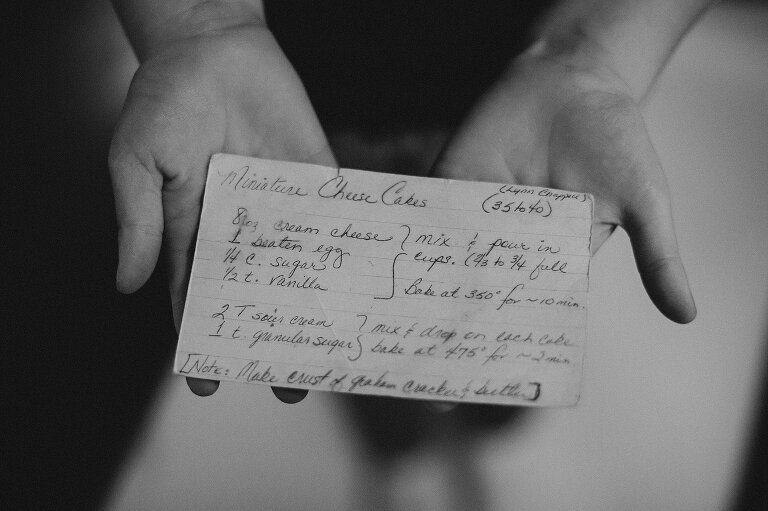 Miniature Cheese Cakes (Lynn
(35 to 40)
8 oz cream cheese } mix & pour in
1 beaten egg cups. (2/3 to 3/4 full
1/4 c. sugar
1/2 t. vanilla Bake at 350° for ~10 min.
2 T sour cream } mix & drop on each cake
1 t. granular sugar bake at 475° for ~2 min
[Note: Make crust of graham cracker & butter]